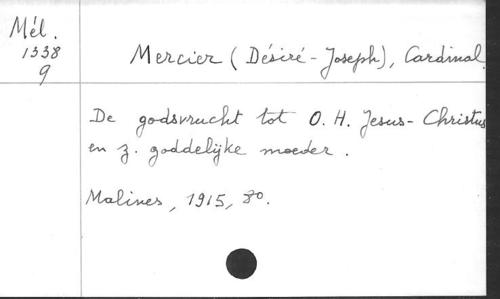 Mél.
1338
9
Mercier (Désiré-Joseph), Cardinal.
De godsvrucht tot O. H. Jesus-Christus
en z. goddelijke moeder.
Malines, 1915, 8o.